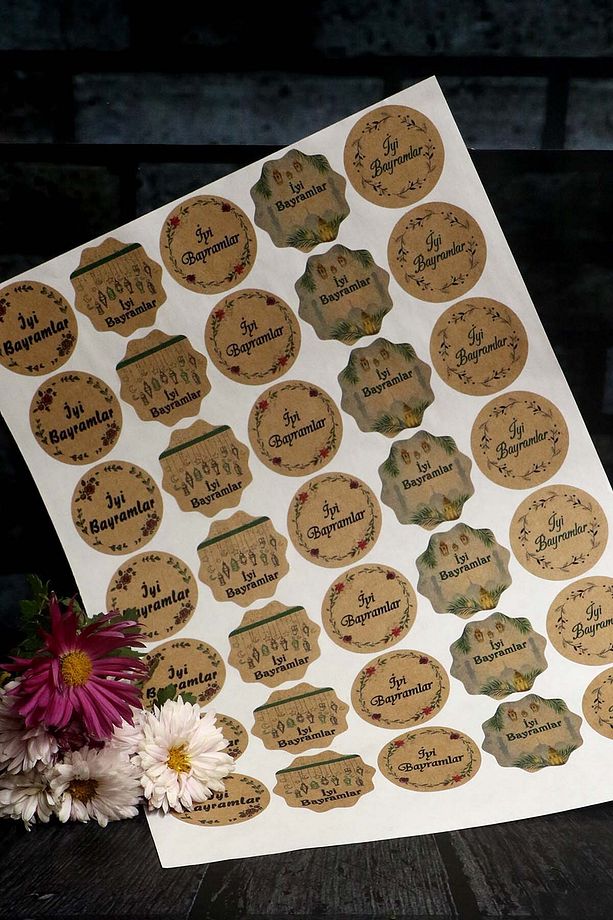 İyi
Bayramlar
İyi
Bayramlar
İyi
Bayramlar
İyi
Bayramlar
İyi
Bayramlar
İyi
Bayramlar
İyi
Bayramlar
İyi
Bayramlar
İyi
Bayramlar
İyi
Bayramlar
İyi
Bayramlar
İyi
Bayramlar
İyi
Bayramlar
İyi
Bayramlar
İyi
Bayramlar
İyi
Bayramlar
İyi
Bayramlar
İyi
Bayramlar
İyi
Bayramlar
İyi
Bayramlar
İyi
Bayramlar
İyi
Bayramlar
İyi
Bayramlar
İyi
Bayramlar
İyi
Bayramlar
İyi
Bayramlar
İyi
Bayramlar
İyi
Bayramlar
İyi
Bayramlar
İyi
Bayramlar
İyi
Bayramlar
İyi